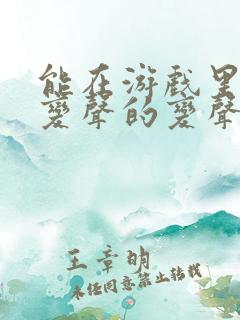 能在游戏里
变声的变声
王章明
未经同意禁止转载